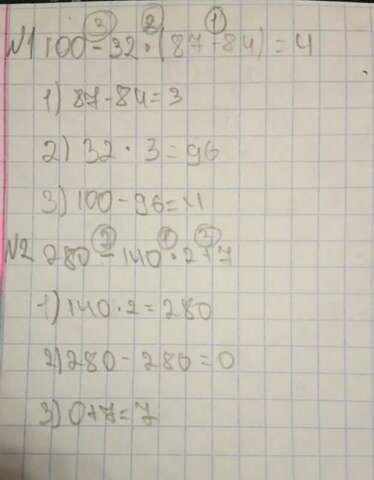 ③ ② ①
№1 100 - 32 · (87 - 84) = 4
1) 87 - 84 = 3
2) 32 · 3 = 96
3) 100 - 96 = 4
① ②
№2 280 - 140 · 2 + 7
1) 140 · 2 = 280
2) 280 - 280 = 0
3) 0 + 7 = 7